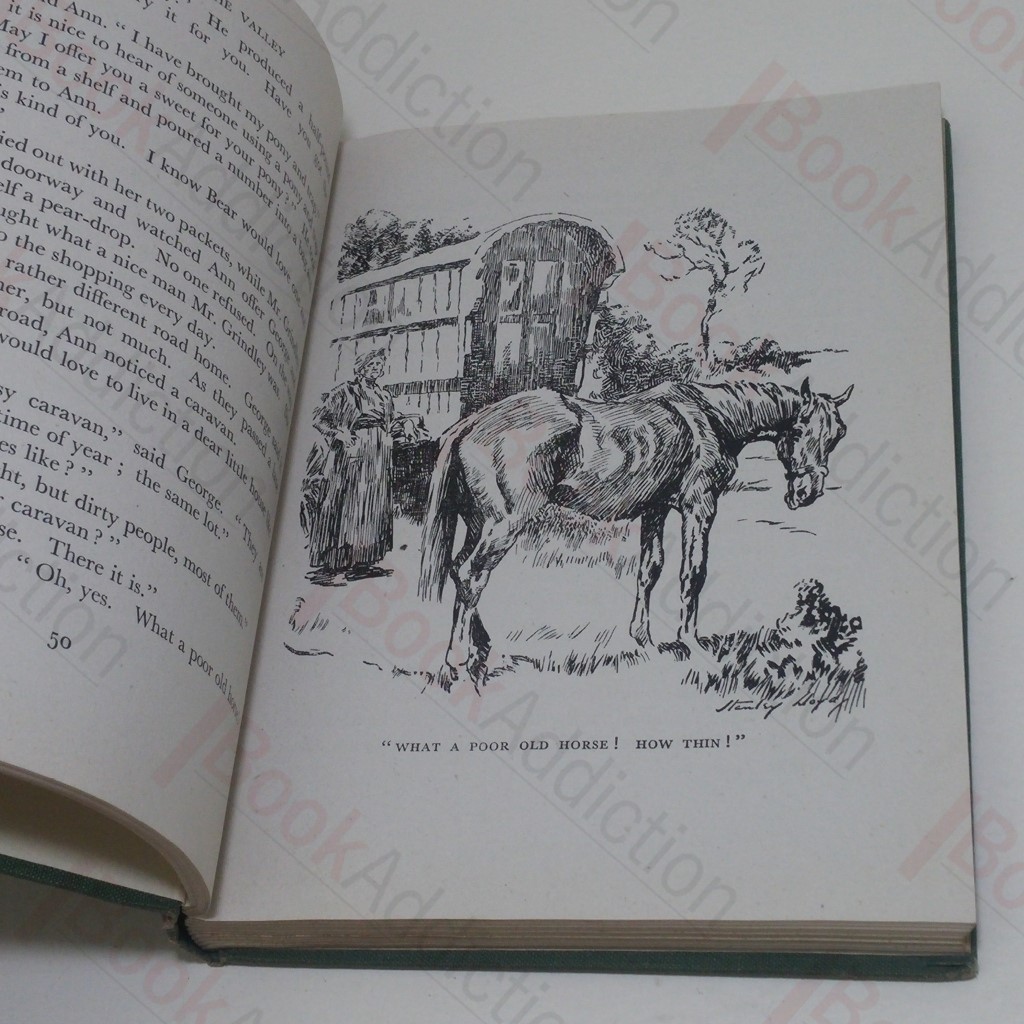 THE VALLEY
He produced a
it for you. Have you
Ann. " I have brought my pony and
it is nice to hear of someone using a pony
May I offer you a sweet for your pony? "
from a shelf and poured a number into a
em to Ann.
s kind of you. I know Bear would love
ied out with her two packets, while Mr.
doorway and watched Ann offer George
elf a pear-drop. No one refused. On the
ught what a nice man Mr. Grindley was
o the shopping every day. George said
rather different road home.
her, but not much. As they passed a
road, Ann noticed a caravan.
would love to live in a dear little house
sy caravan," said George. " They
time of year ; the same lot."
es like? "
ht, but dirty people, most of them
caravan? "
se. There it is."
" Oh, yes. What a poor old horse
50
Stanley Lloyd
" WHAT A POOR OLD HORSE! HOW THIN! "
BookAddiction